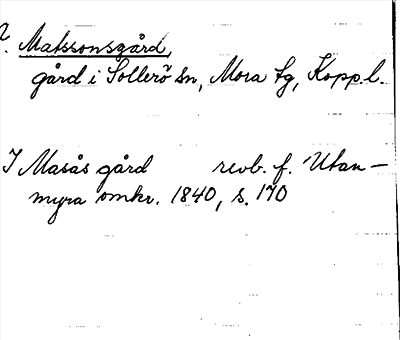 ?. Matssonsgård,
gård i Sollerö sn, Mora tg, Kopp.l.
I Masås gård revb. f. Utan-
myra omkr. 1840, s. 170